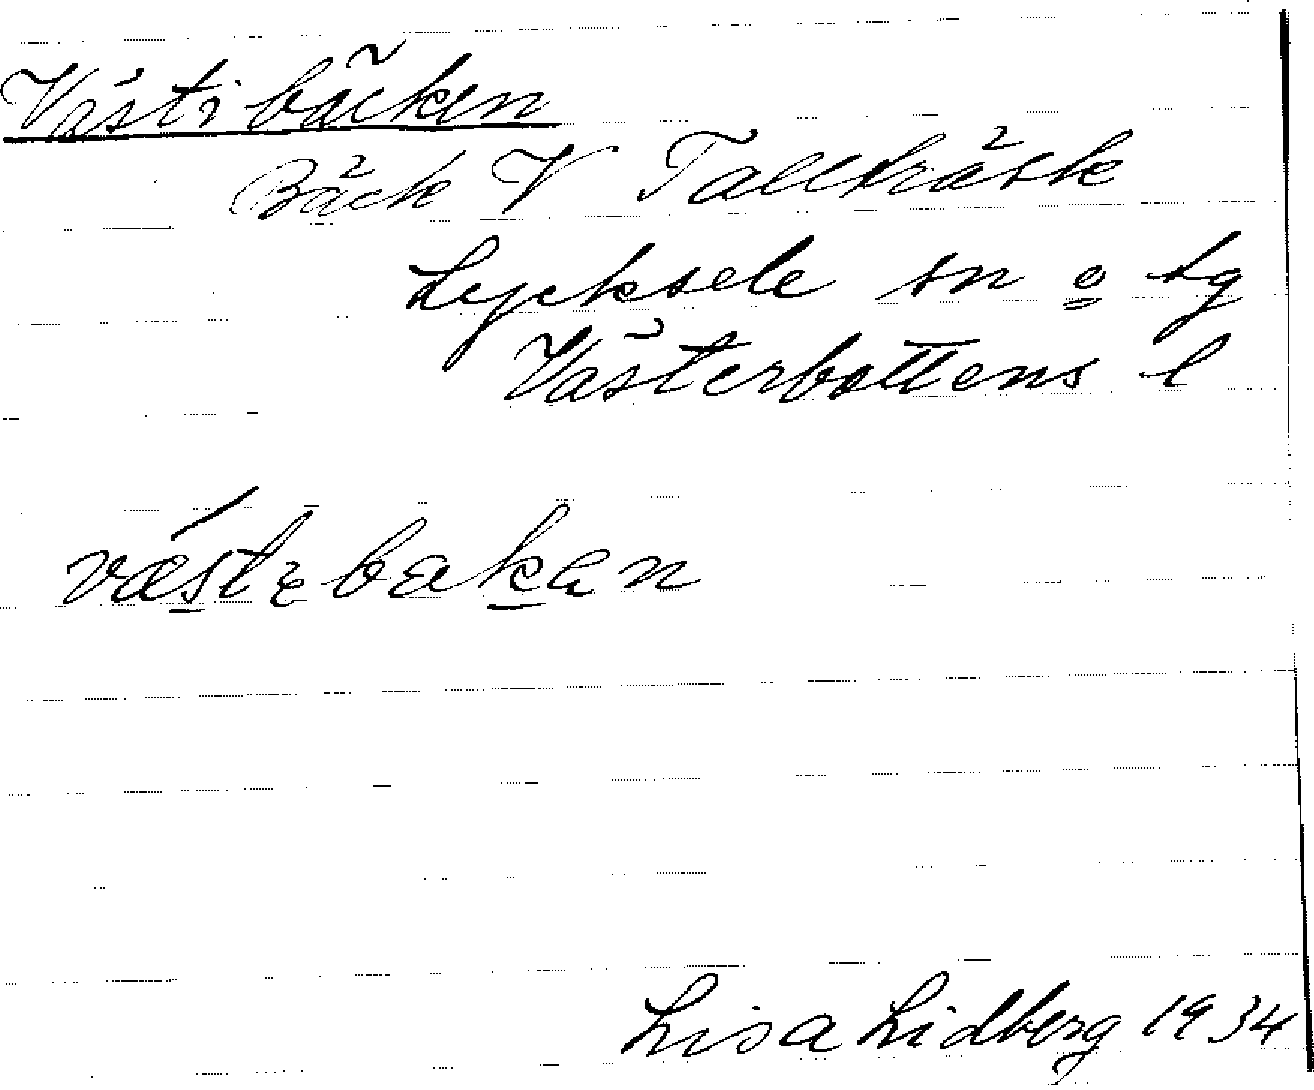 Västibäcken
Bäck V Tallträsk
Lycksele sn o tg
Västerbottens l
væstɛbækɛn
Lisa Lidberg 1934